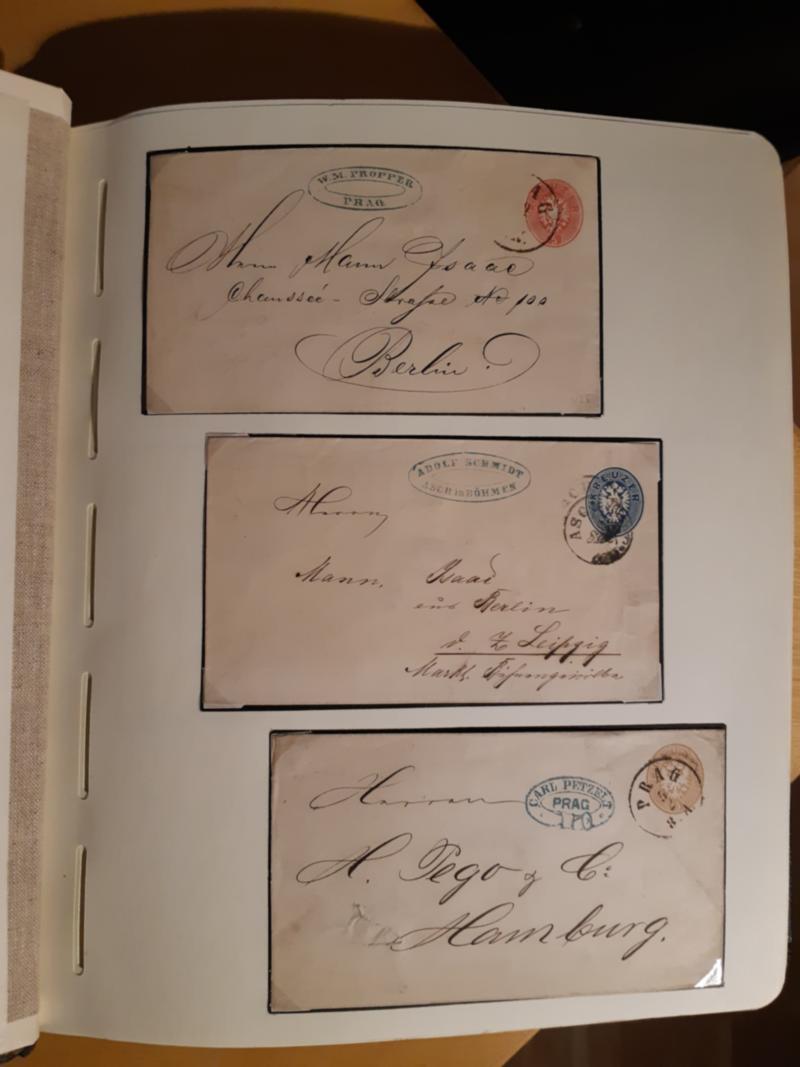 W. M. PROPPER
PRAG.
AG
Herrn Mann Isaac
Chausseé - Strasse No 100
Berlin.
ADOLF SCHMIDT
ASCH in BÖHMEN
KREUZER
ASC
Herrn
Mann, Isaac
aus Berlin
d. Z. Leipzig
Markt,
CARL PETZELT
PRAG
PRAG
Herren
H. Pego & C:
Hamburg.